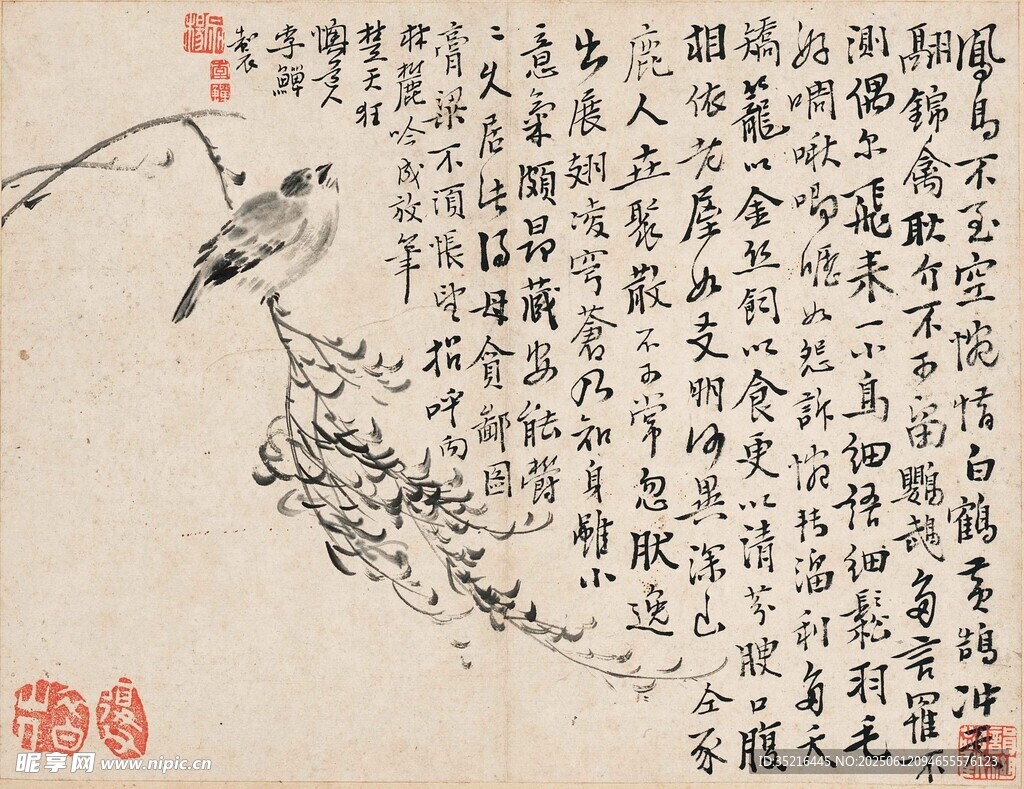 鳳鳥不至空惋惜白鶴黃鵠沖天
翮錦禽耿介不可留鸚鵡多言罹不
測偶尔飛来一小鳥細語細鬆羽毛
好啁啾唧嚦如怨訴惋轉溜利多夭
矯籠以金絲飼以食更以清芬腴口腹
相依老屋如友朋何異深山仝豕
鹿人生聚散不可常忽肰逸
出展翅凌穹蒼乃知身雖小
意氣頗昂藏安能欝
二久居此得毋貪鄙圖
膏粱不須悵望招呼向
林麓吟成放筆
楚天狂
懊道人
李鱓
製
昵享网 www.nipic.cn
ID:35216445 NO:20250612094655576123